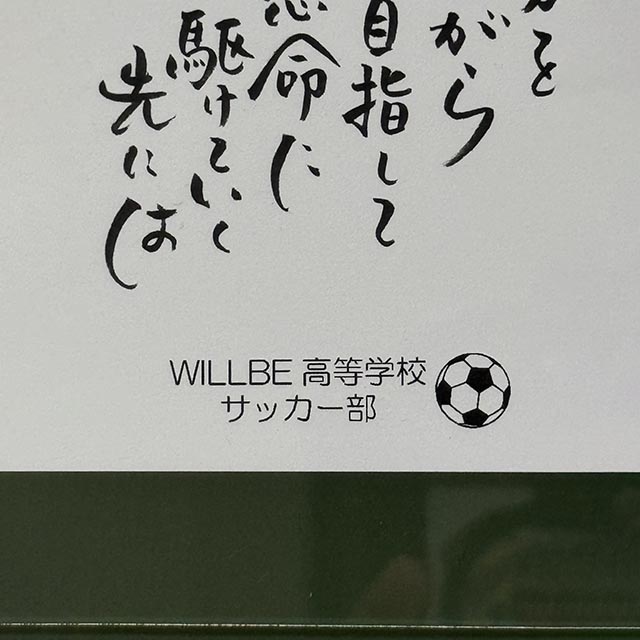 がら
目指して
命に
駆けていく
先には
WILLBE 高等学校
サッカー部